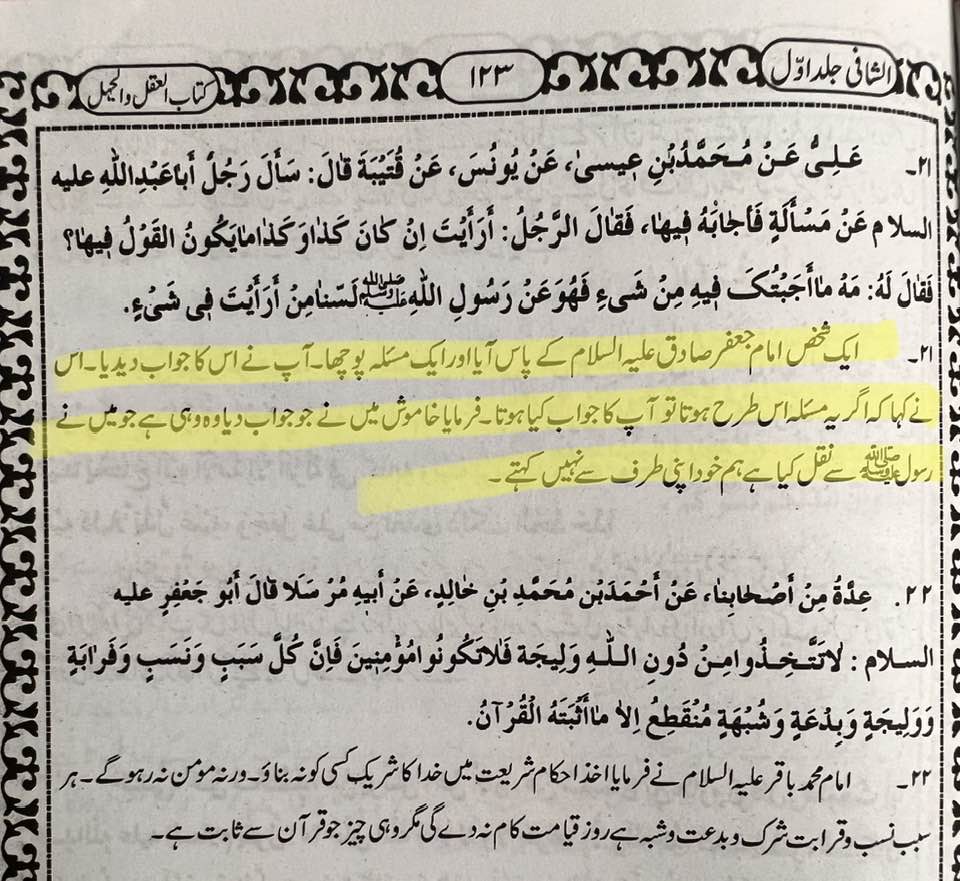 الشافی جلد اوّل
۱۲۳
کتاب العقل والجہل
۲۱۔ عَلِيٌّ عَنْ مُحَمَّدُبْنِ عِيسىٰ، عَنْ يُونُسَ، عَنْ قُتَيْبَةَ قالَ: سَأَلَ رَجُلٌ أَباعَبْدِاللهِ عليه
السلام عَنْ مَسْأَلَةٍ فَأَجابَهُ فِيها، فَقالَ الرَّجُلُ: أَرَأَيْتَ اِنْ كانَ كَذاوَ كَذامايَكُونُ الْقَوْلُ فِيها؟
فَقالَ لَهُ: مَهْ ماأَجَبْتُكَ فِيهِ مِنْ شَىْءٍ فَهُوَعَنْ رَسُولِ اللهِ ﷺ لَسْنامِنْ أَرَأَيْتَ فِى شَىْءٍ.
۲۱۔ ایک شخص امام جعفر صادق علیہ السلام کے پاس آیا اور ایک مسئلہ پوچھا۔ آپ نے اس کا جواب دیدیا۔ اس
نے کہا کہ اگر یہ مسئلہ اس طرح ہوتا تو آپ کا جواب کیا ہوتا۔ فرمایا خاموش میں نے جو جواب دیا وہ وہی ہے جو میں نے
رسول ﷺ سے نقل کیا ہے ہم خود اپنی طرف سے نہیں کہتے۔
۲۲. عِدَّةٌ مِنْ أَصْحابِنا، عَنْ أَحْمَدَبْنِ مُحَمَّدِ بْنِ خالِدٍ، عَنْ أَبِيهِ مُرْ سَلا قالَ أَبُو جَعْفَرٍ عليه
السلام : لاتَتَّخِذُوامِنْ دُونِ اللهِ وَلِيجَة فَلاتَكُونُوامُؤْمِنِينَ فَاِنَّ كُلَّ سَبَبٍ وَنَسَبٍ وَقَرابَةٍ
وَوَلِيجَةٍ وَبِدْعَةٍ وَشُبْهَةٍ مُنْقَطِعُ اِلاّ ماأَثْبَتَهُ الْقُرْآنُ.
۲۲۔ امام محمد باقر علیہ السلام نے فرمایا اخذ احکام شریعت میں خدا کا شریک کسی کو نہ بناؤ۔ ورنہ مومن نہ رہو گے۔ ہر
سبب نسب و قرابت شرک و بدعت و شبہ ہے روز قیامت کام نہ دے گی مگر وہی چیز جو قرآن سے ثابت ہے۔